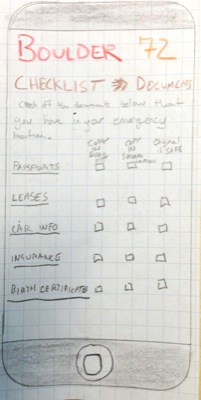 BOULDER 72
CHECKLIST DOCUMENTS
check off the documents below that
you have in your emergency
location.
COPY IN COPY IN Original is SAFE
PASSPORTS
LEASES
CAR INFO
INSURANCE
BIRTH CERTIFICATE